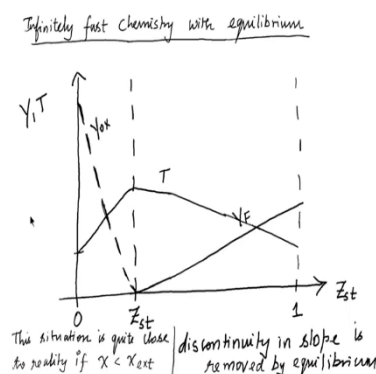 Infinitely fast chemistry with equilibrium
Y, T
Yox
T
YF
0
Zst
1
Zst
This situation is quite close
to reality if X < Xext
discontinuity in slope is
removed by equilibrium